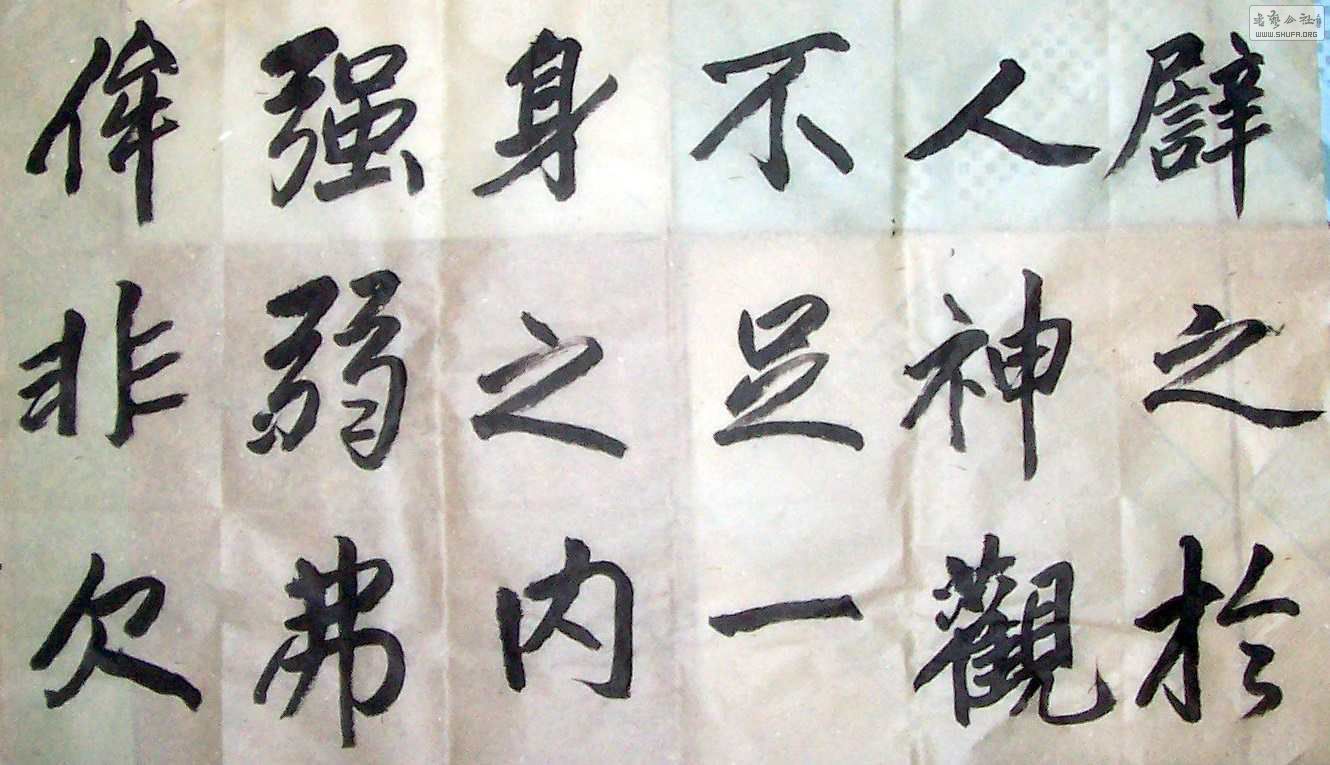 譬之於
人神觀
不足一
身之内
强弱弗
侔非久
书艺公社
WWW.SHUFA.ORG